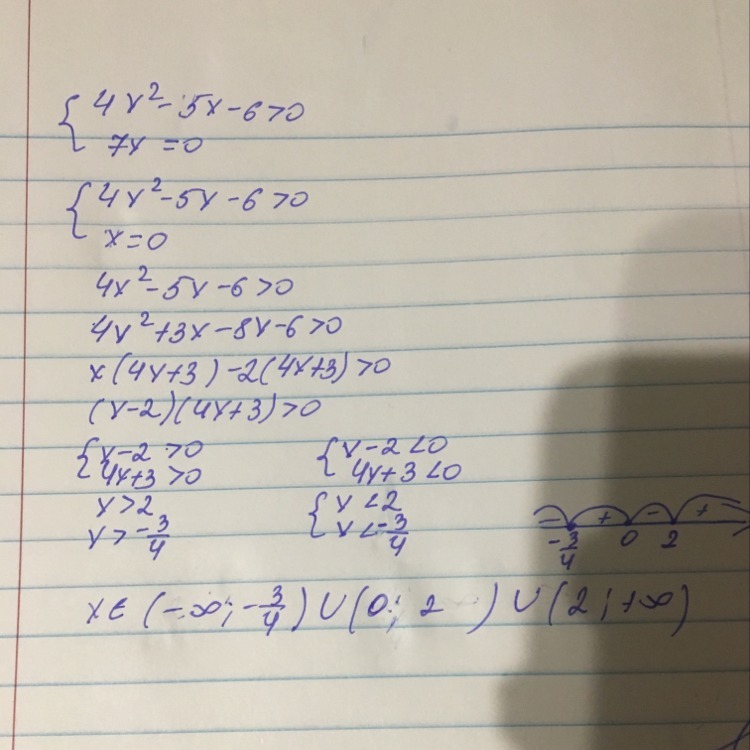 { 4x² - 5x - 6 > 0
7x = 0
{ 4x² - 5x - 6 > 0
x = 0
4x² - 5x - 6 > 0
4x² + 3x - 8x - 6 > 0
x(4x+3) - 2(4x+3) > 0
(x-2)(4x+3) > 0
{ x-2 > 0 { x-2 < 0
4x+3 > 0 4x+3 < 0
x > 2 { x < 2
x > -3/4 x < -3/4
- + - + -
-3/4 0 2
x ∈ (-∞; -3/4) ∪ (0; 2) ∪ (2; +∞)